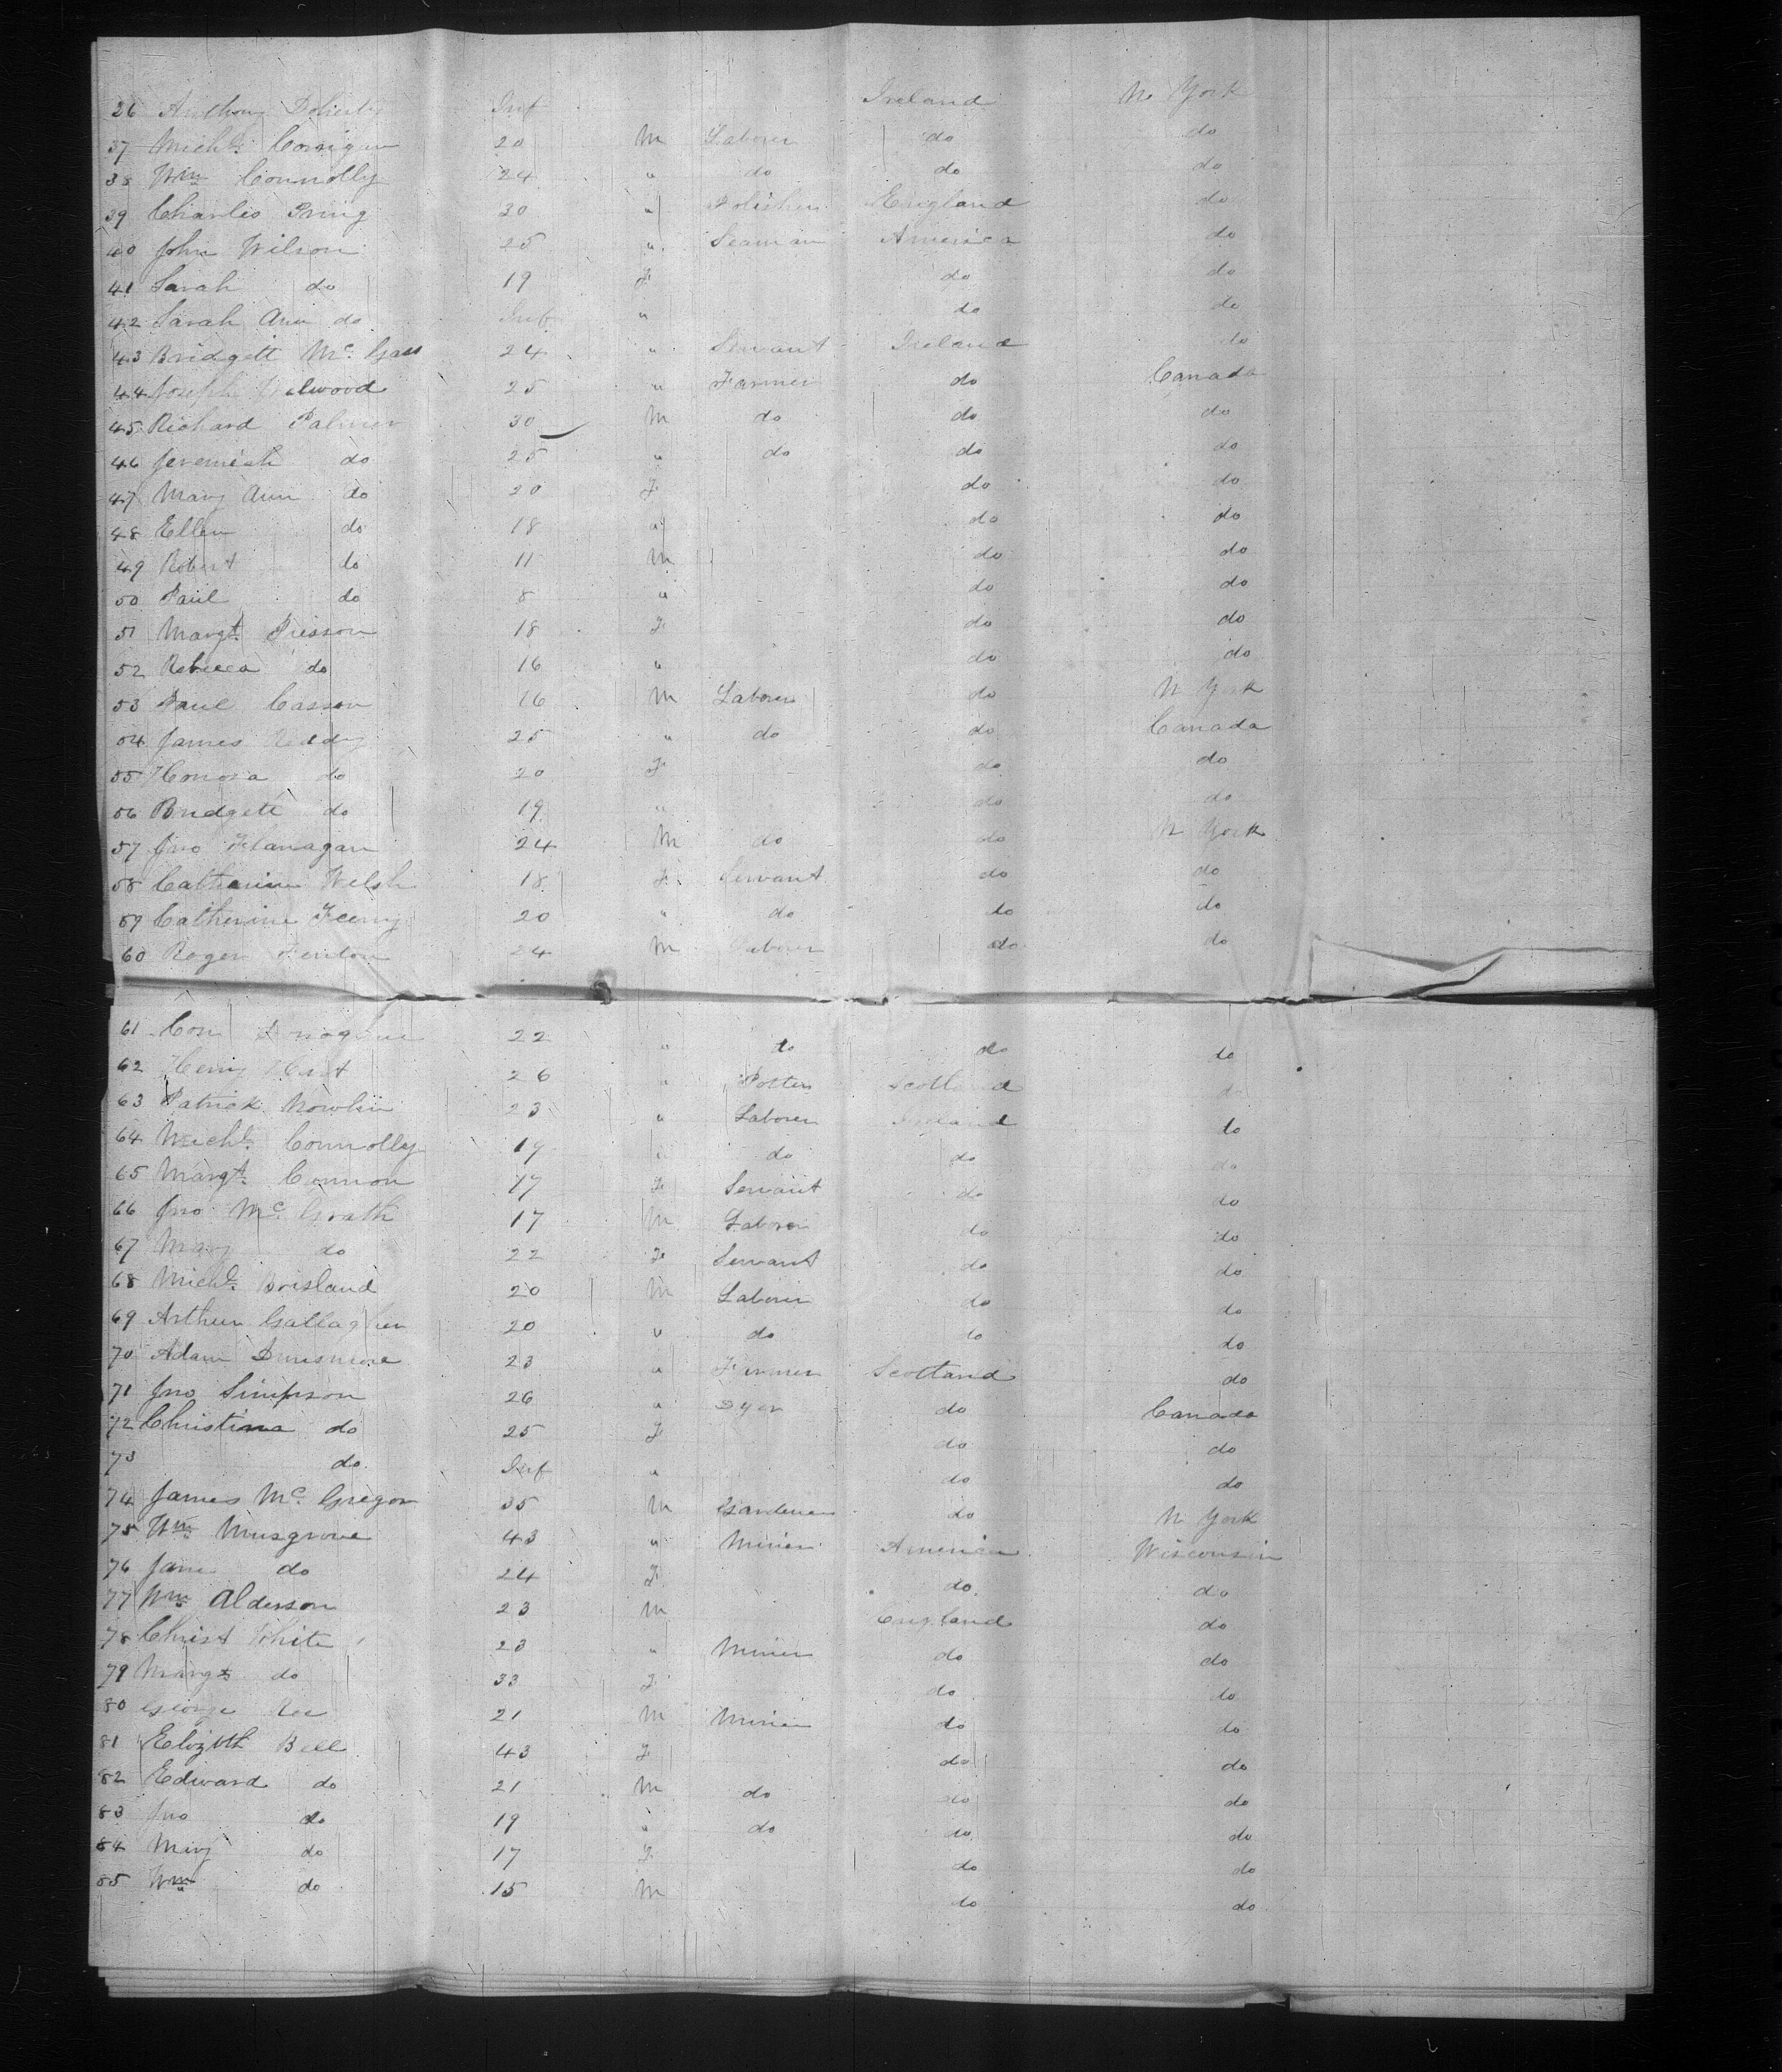 36 Anthony Doherty Inf Ireland N. York
37 Michl. Corrigan 20 M Laborer do do
38 Wm Connolly 24 " do do do
39 Charles 30 " Polisher England do
40 John Wilson 25 " Seaman America do
41 Sarah do 19 F do do
42 Sarah Ann do Inf " do do
43 Bridgett Mc. Gass 24 " Servant Ireland do
44 Joseph 25 " Farmer do Canada
45 Richard Palmer 30 M do do do
46 Jeremiah do 25 " do do do
47 Mary Ann do 20 F do do
48 Ellen do 18 " do do
49 Robert do 11 M do do
50 Paul do 8 " do do
51 Margt. 18 F do do
52 Rebecca do 16 " do do
53 Paul Casson 16 M Laborer do N York
54 James Reddy 25 " do do Canada
55 Honora do 20 F do do
56 Bridgett do 19 " do do
57 Jno Flanagan 24 M do do N York
58 Catherine Welsh 18 F Servant do do
59 Catherine Feeny 20 " do do do
60 Roger Fenton 24 M Laborer do do
61 Con 22 " do do do
62 Henry Hart 26 " Potter Scotland do
63 Patrick Nowlin 23 " Laborer Ireland do
64 Michl. Connolly 19 " do do do
65 Margt. Cannon 17 F Servant do do
66 Jno Mc. Grath 17 M Laborer do do
67 Mary do 22 F Servant do do
68 Michl. Brisland 20 M Laborer do do
69 Arthur Gallagher 20 " do do do
70 Adam Dunsmore 23 " Farmer Scotland do
71 Jno Simpson 26 " Dyer do Canada
72 Christina do 25 F do do
73 do Inf " do do
74 James Mc. Gregor 35 M Gardener do N York
75 Wm Musgrove 43 " Miner America Wisconsin
76 Jane do 24 F do do
77 Wm Alderson 23 M England do
78 Christ White 23 " Miner do do
79 Margt do 33 F do do
80 George Ree 21 M Miner do do
81 Elizbth Bell 43 F do do
82 Edward do 21 M do do do
83 Jno do 19 " do do do
84 Mary do 17 F do do
85 Wm do 15 M do do